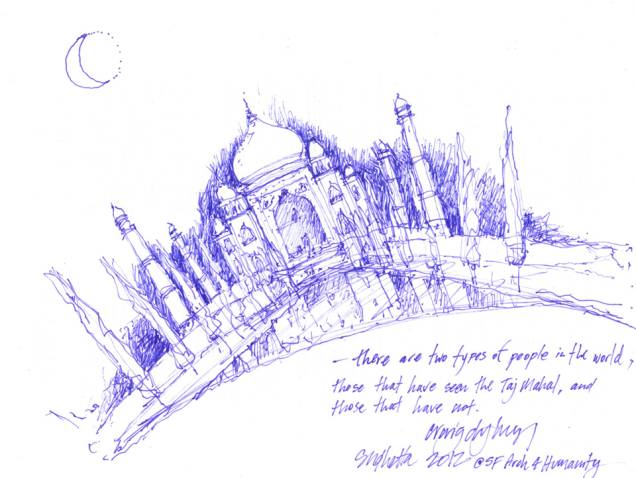 — there are two types of people in the world,
those that have seen the Taj Mahal, and
those that have not.
2012 @SF Arch & Humanity